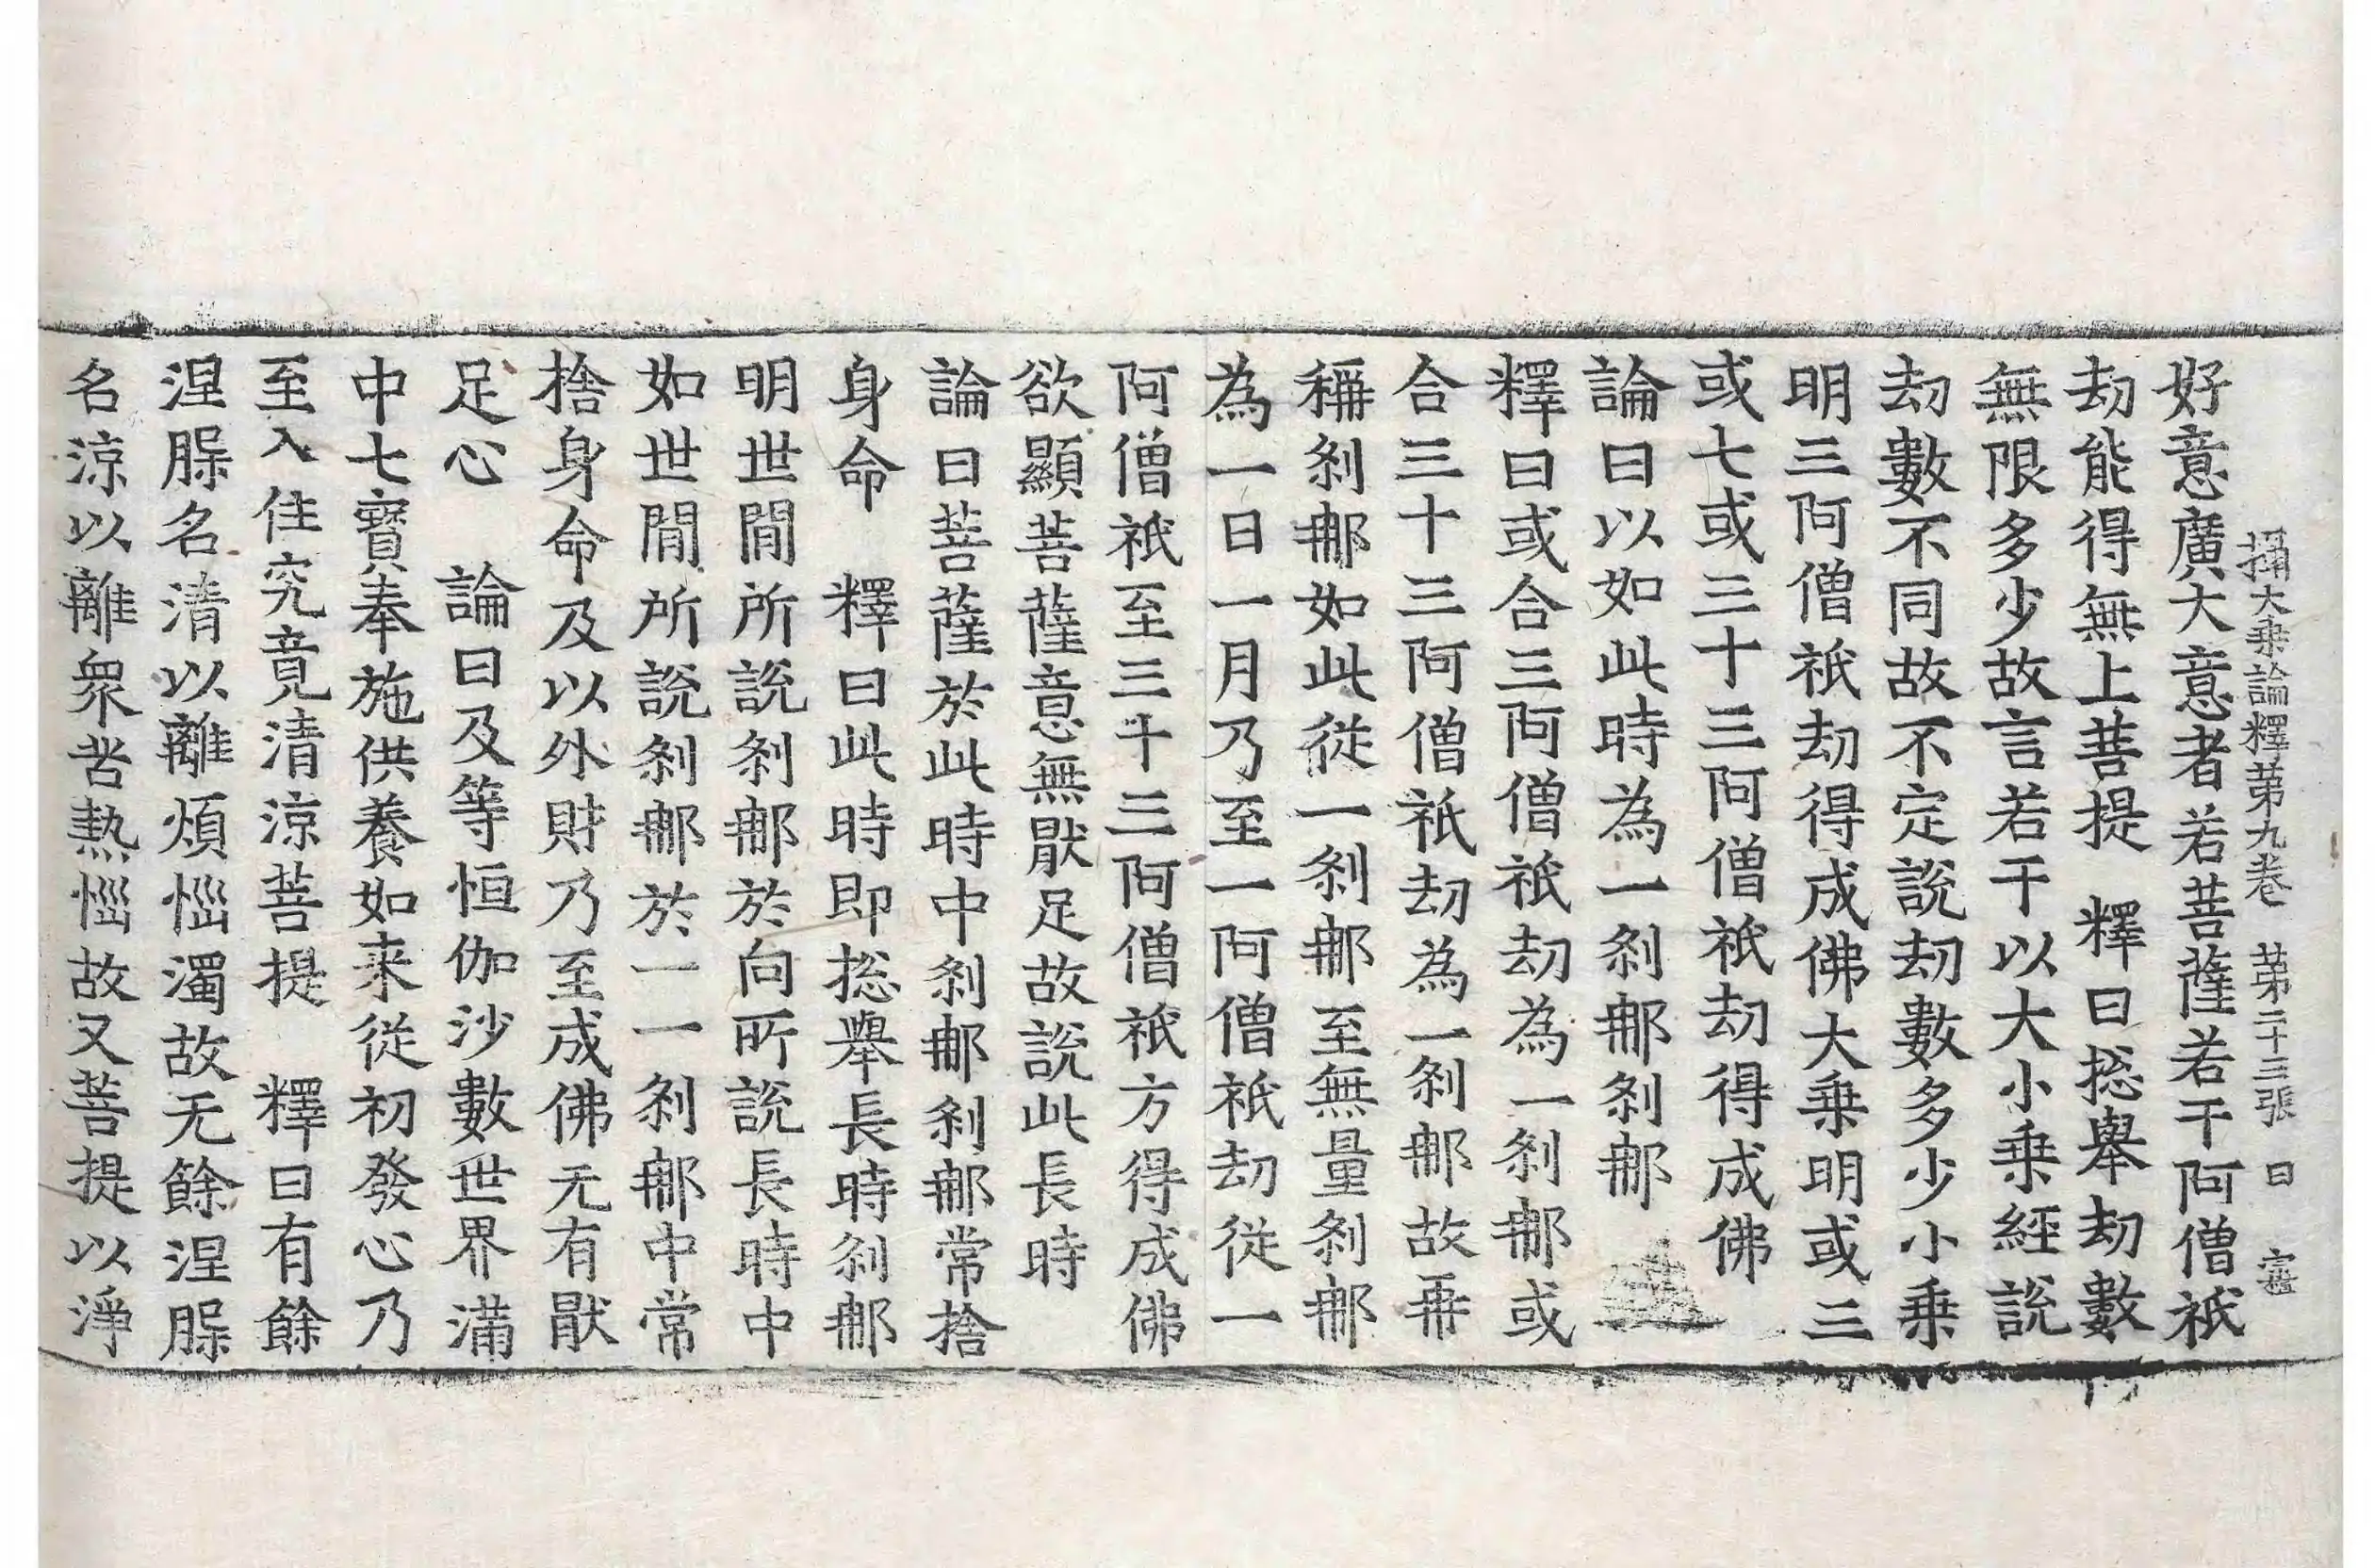 攝大乗論釋苐九卷 苐二十三張 日
好意廣大意者若菩薩若干阿僧祇
劫能得無上菩提 釋曰捴舉劫數
無限多少故言若干以大小乗經說
劫數不同故不定說劫數多少小乗
明三阿僧祇劫得成佛大乗明或三
或七或三十三阿僧祇劫得成佛
論曰以如此時為一刹那刹那
釋曰或合三阿僧祇劫為一刹那或
合三十三阿僧祇劫為一刹那故再
稱刹那如此從一刹那至無量刹那
為一日一月乃至一阿僧祇劫從一
阿僧祇至三十三阿僧祇方得成佛
欲顯菩薩意無猒足故說此長時
論曰菩薩於此時中刹那刹那常捨
身命 釋曰此時即捴舉長時刹那
明世間所說刹那於向所說長時中
如世間所說刹那於一一刹那中常
捨身命及以外財乃至成佛无有猒
足心 論曰及等恒伽沙數世界滿
中七寶奉施供養如来從初發心乃
至入住究竟清涼菩提 釋曰有餘
涅槃名清以離煩惱濁故无餘涅槃
名涼以離衆苦熱惱故又菩提以淨